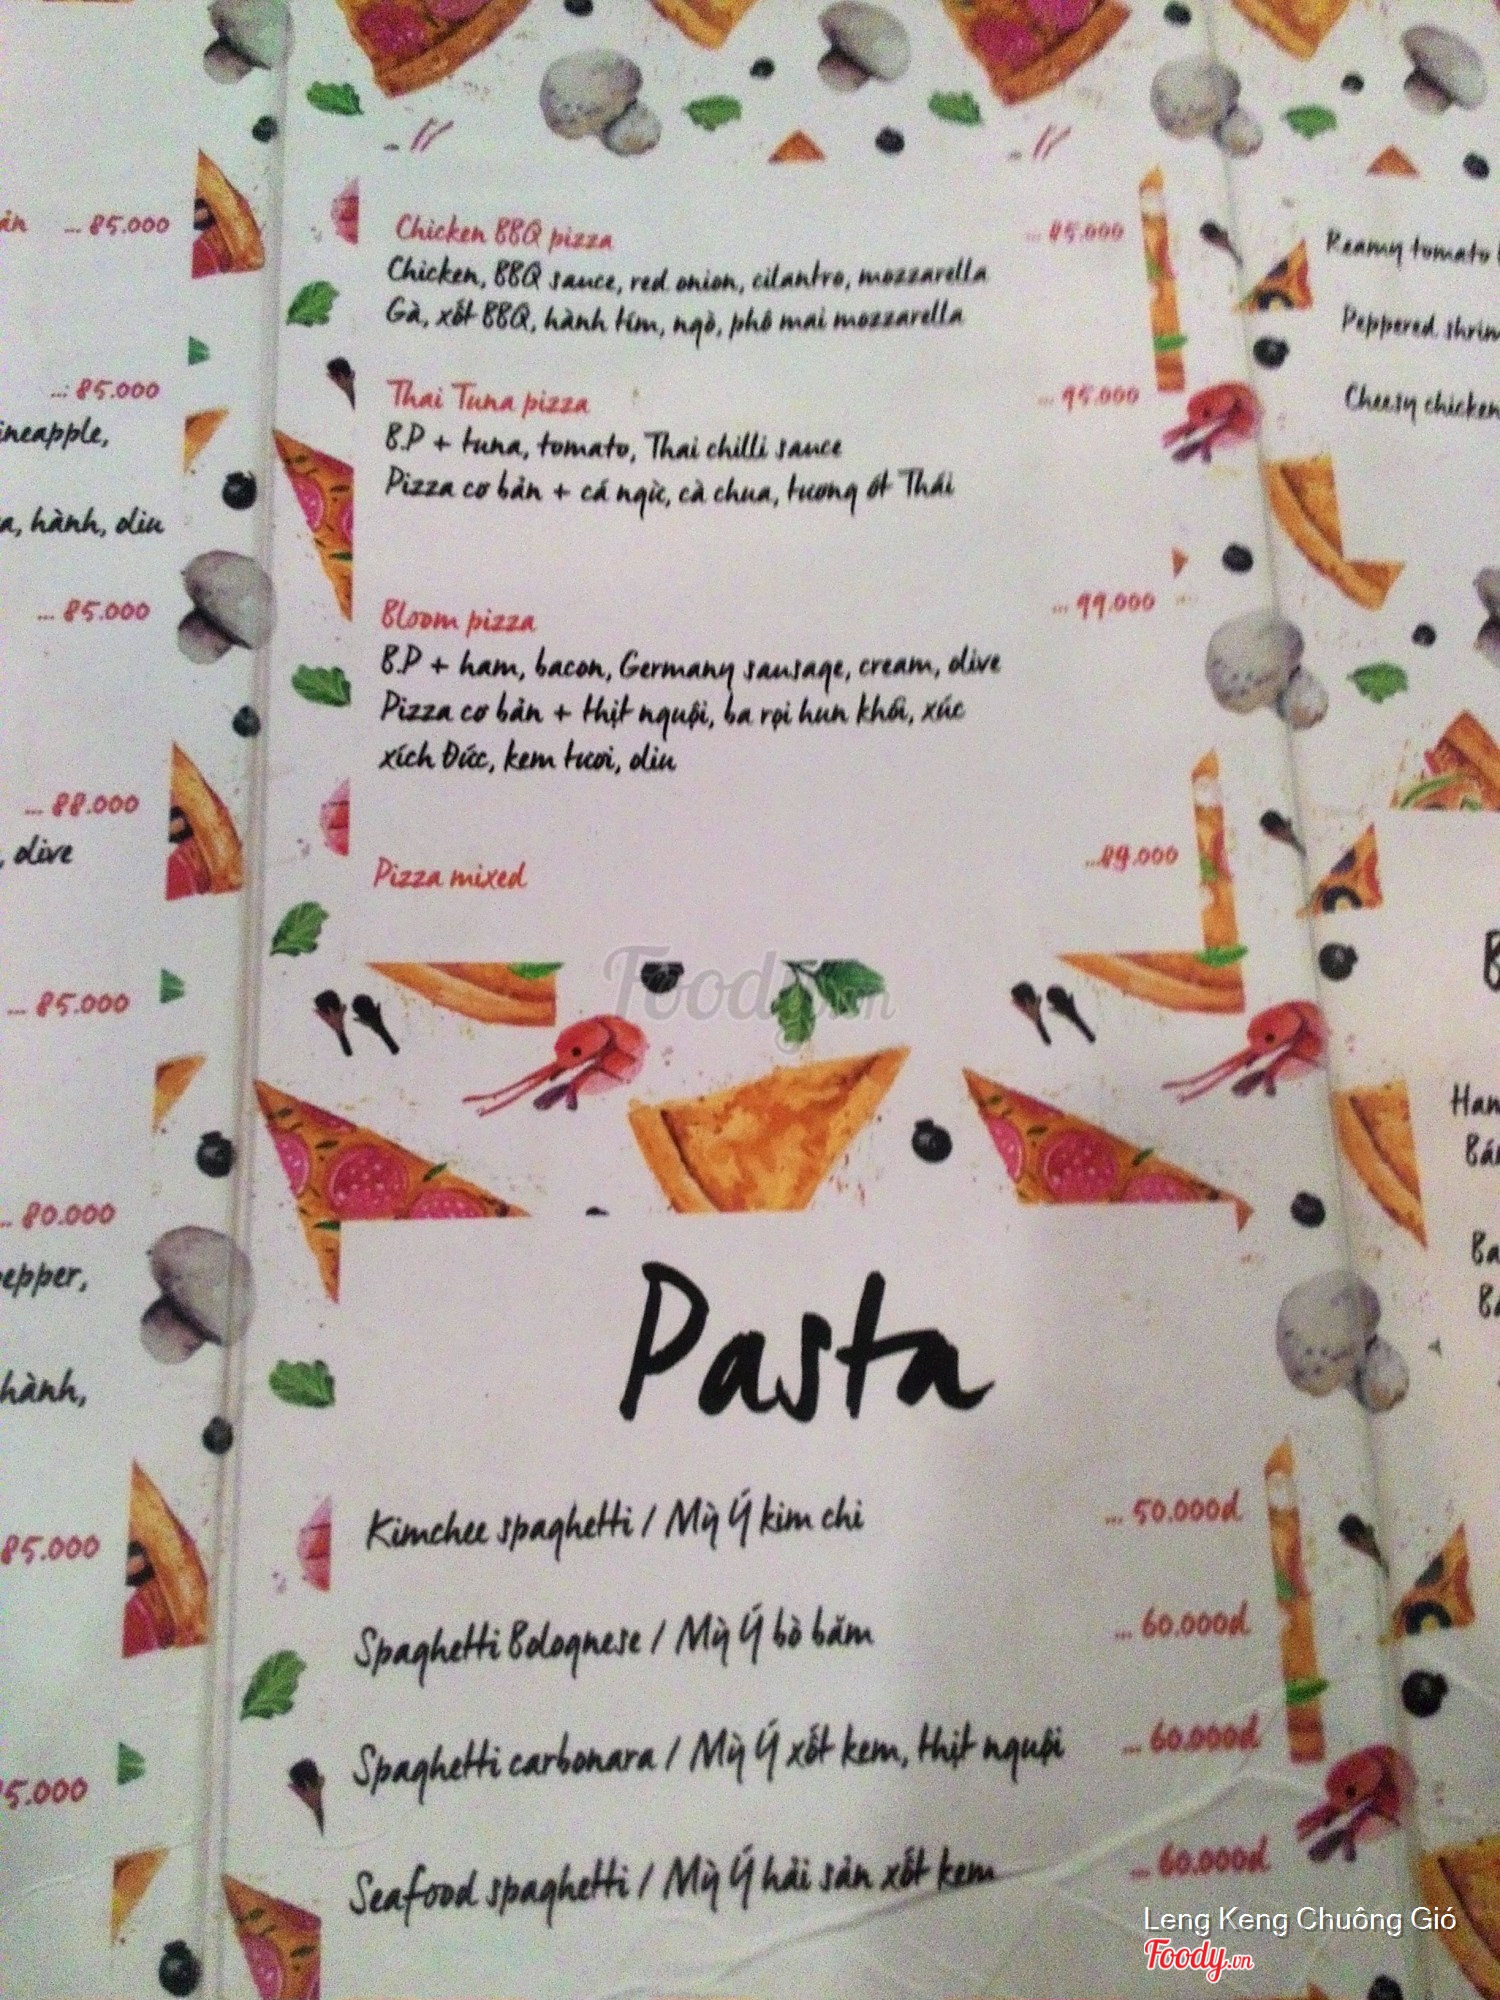 ản ... 85.000
... 85.000
ineapple,
a, hành, oliu
... 85.000
... 88.000
, olive
... 85.000
... 80.000
pepper,
hành,
85.000
85.000
Chicken BBQ pizza ... 85.000
Chicken, BBQ sauce, red onion, cilantro, mozzarella
Gà, xốt BBQ, hành tím, ngò, phô mai mozzarella
Thai Tuna pizza ... 95.000
B.P + tuna, tomato, Thai chilli sauce
Pizza cơ bản + cá ngừ, cà chua, tương ớt Thái
Bloom pizza ... 99.000
B.P + ham, bacon, Germany sausage, cream, olive
Pizza cơ bản + thịt nguội, ba rọi hun khói, xúc
xích Đức, kem tươi, oliu
Pizza mixed ...89.000
Foody.vn
Pasta
Kimchee spaghetti / Mỳ Ý kim chi ... 50.000đ
Spaghetti Bolognese / Mỳ Ý bò băm ... 60.000đ
Spaghetti carbonara / Mỳ Ý xốt kem, thịt nguội ... 60.000đ
Seafood spaghetti / Mỳ Ý hải sản xốt kem ... 60.000đ
Reamy tomato
Peppered shrim
Cheesy chicken
Han
Bán
Ba
Leng Keng Chuông Gió
Foody.vn